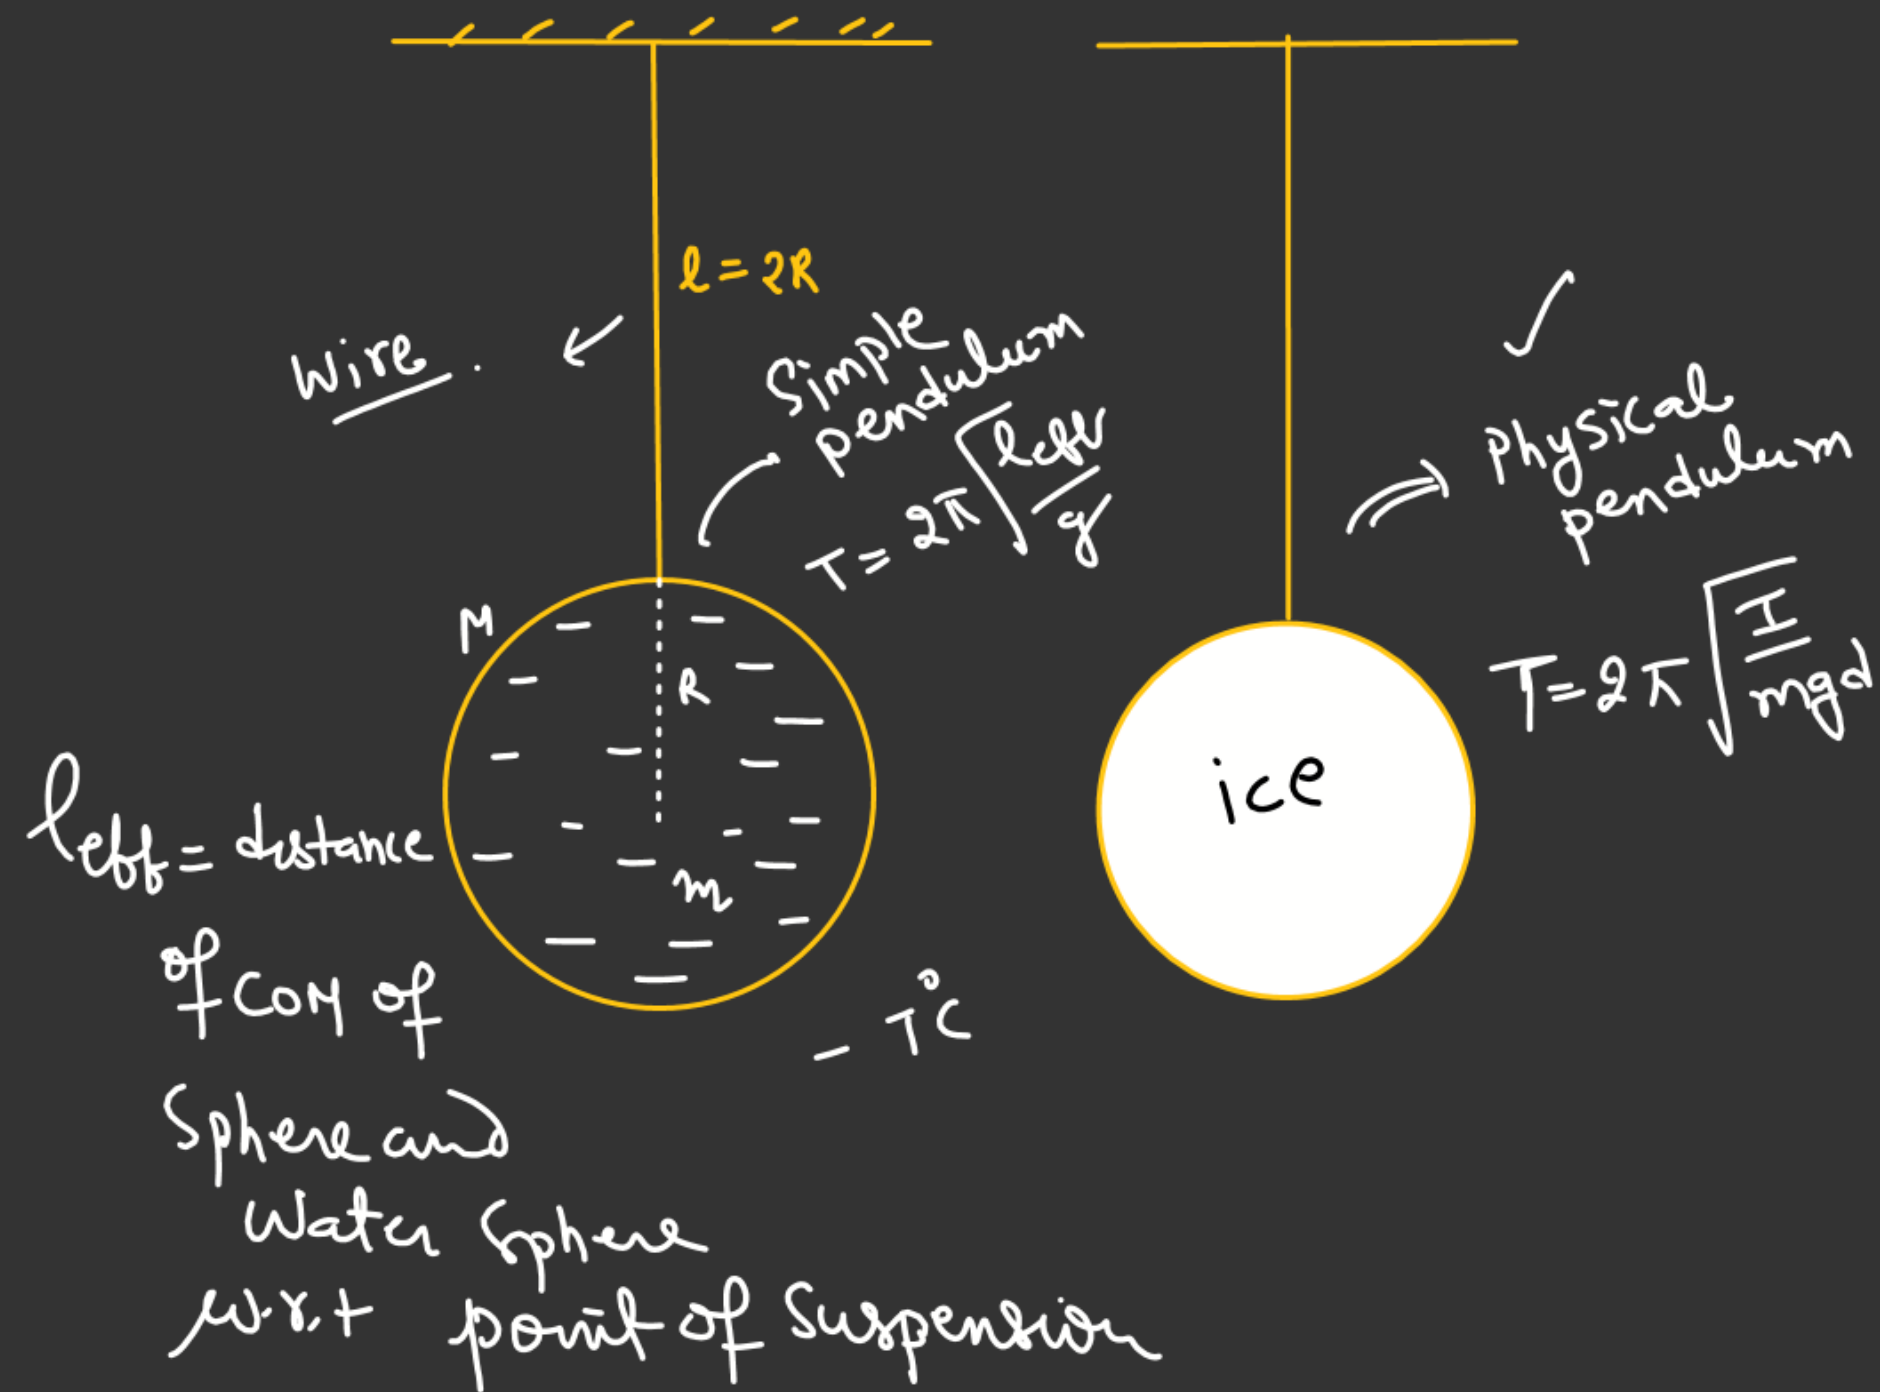 l = 2R
Wire.
Simple
pendulum
T = 2π√(leff/g)
Physical
pendulum
T = 2π√(I/mgd)
M
R
m
ice
- T°C
leff = distance
of COM of
Sphere and
Water Sphere
w.r.t point of Suspension